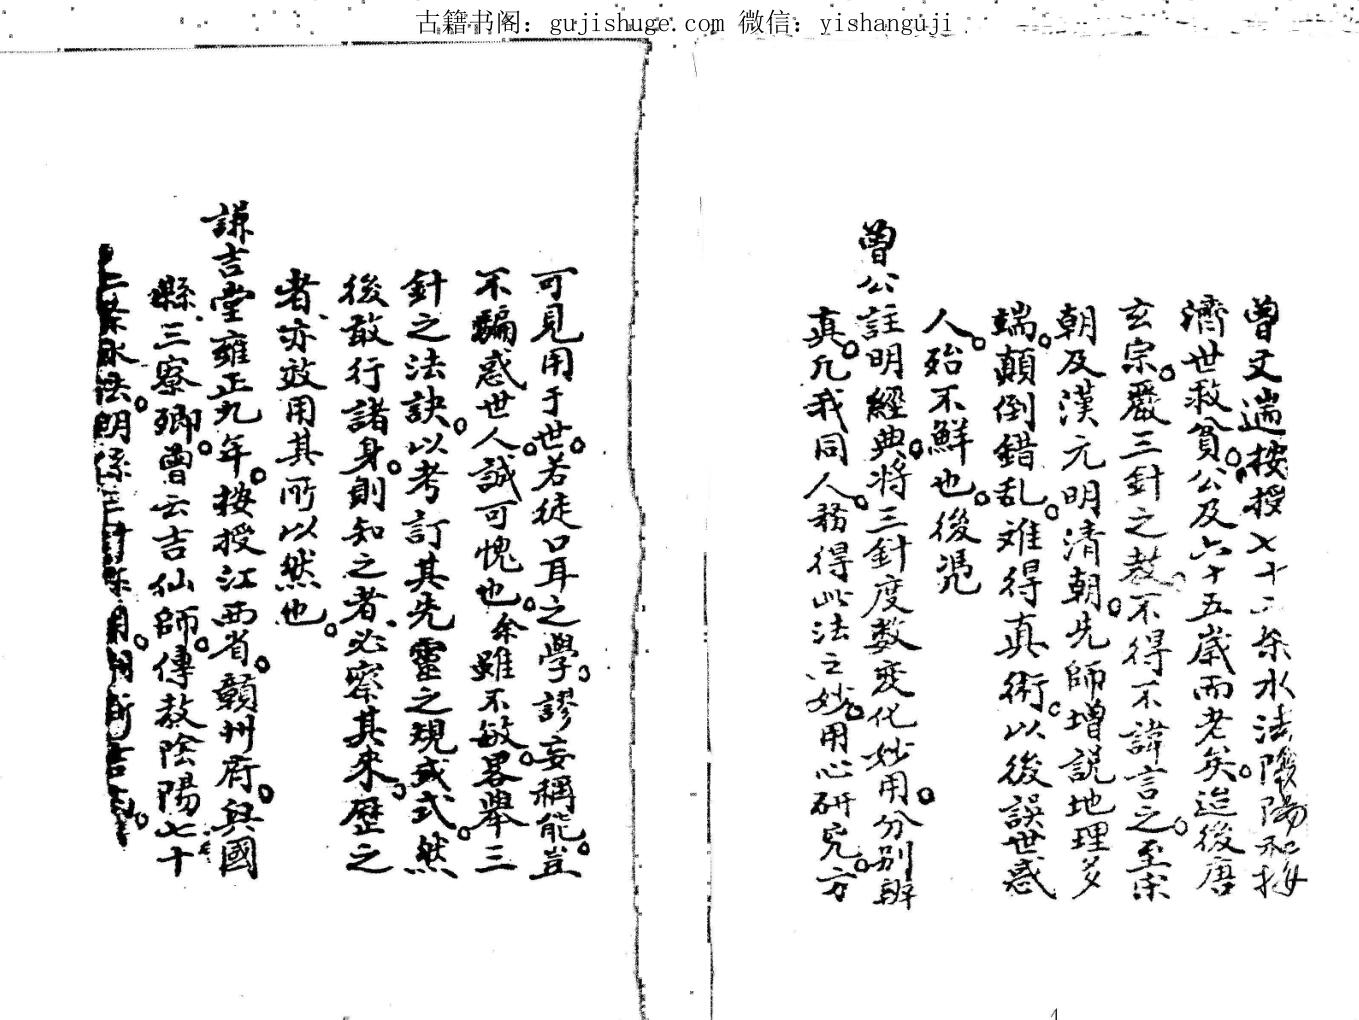 古籍书阁：gujishuge.com 微信：yishanguji
曾文遄按授七十二条水法陰陽和按
濟世救貧公及六十五歲而老矣迨後唐
玄宗嚴三針之教不得不諱言之至宋
朝及漢元明清朝先師增説地理多
端顛倒錯乱难得真術以後誤世惑
人殆不鮮也後凴
曾公註明經典將三針度数变化妙用分別辨
真凢我同人務得此法之妙用心研究方
可見用于世若徒口耳之學謬妄稱能豈
不騙惑世人誠可愧也余雖不敏畧舉三
針之法訣以考訂其先靈之規或式然
後敢行諸身則知之者必察其来歷之
者亦效用其所以然也
謙吉堂雍正九年按授江西省贛州府興國
縣三寮鄉曾云吉仙師傳教陰陽七十
二条水法明係三針
1